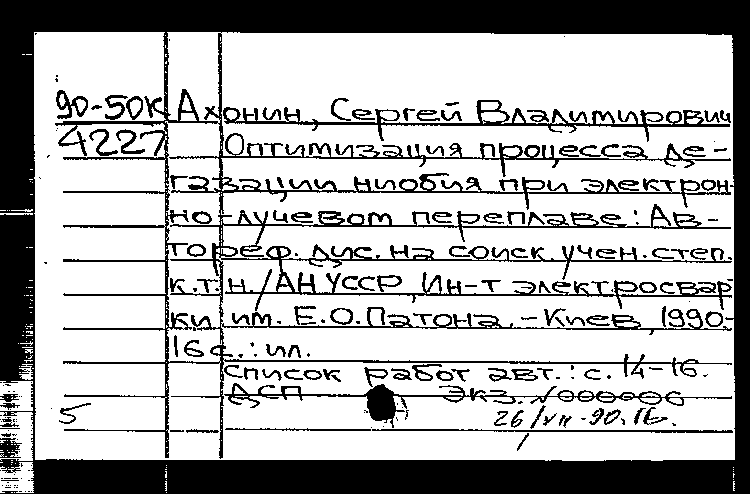 90-50К Ахонин, Сергей Владимирович
4227 Оптимизация процесса де-
газации ниобия при электрон-
но-лучевом переплаве: Ав-
тореф. дис. на соиск. учен. степ.
к.т.н. / АН УССР, Ин-т электросвар
ки им. Е.О.Патона. - Киев, 1990.-
16 с.: ил.
Список работ авт.: с. 14-16.
ДСП Экз. №000000
5 26/VII-90.